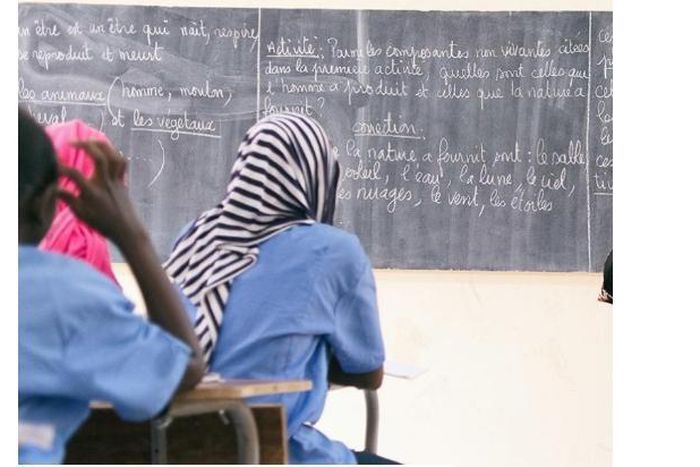 un être est un être qui naît, respire,
se reproduit et meurt
les animaux (homme, mouton,
cheval ) et les végétaux
(....)
Activité : Parmi les composantes non vivantes citées
dans la première activité, quelles sont celles que
l'homme a produit et celles que la nature a
fournit ?
correction :
la nature a fournit sont : le sable
soleil, l'eau, la lune, le ciel,
les nuages, le vent, les étoiles